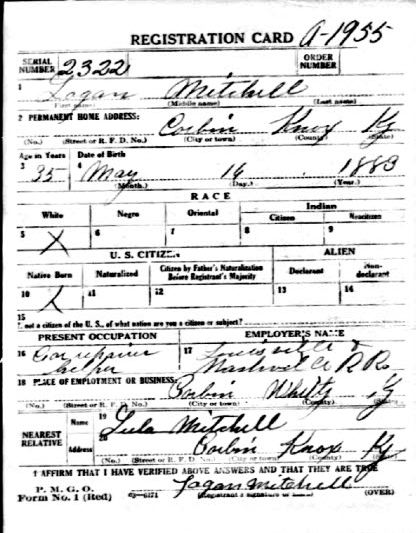 REGISTRATION CARD A-1955
SERIAL NUMBER 2322 ORDER NUMBER
1 Logan Mitchell
(First name) (Middle name) (Last name)
2 PERMANENT HOME ADDRESS:
Corbin Knox Ky
(No.) (Street or R. F. D. No.) (City or town) (County) (State)
Age in Years Date of Birth
3 35 4 May 16 1883
(Month.) (Day.) (Year.)
RACE
White Negro Oriental Indian
Citizen Noncitizen
5 X 6 7 8 9
U. S. CITIZEN ALIEN
Native Born Naturalized Citizen by Father's Naturalization Before Registrant's Majority Declarant Non-declarant
10 X 11 12 13 14
15
not a citizen of the U. S., of what nation are you a citizen or subject?
PRESENT OCCUPATION EMPLOYER'S NAME
16 Car repairer 17 Louisville &
helper Nashville R Ro
18 PLACE OF EMPLOYMENT OR BUSINESS:
Corbin Whitly Ky
(No.) (Street or R. F. D. No.) (City or town) (County) (State)
NEAREST RELATIVE Name 19 Lula Mitchell
Address 20 Corbin Knox Ky
(No.) (Street or R. F. D. No.) (City or town) (County) (State)
I AFFIRM THAT I HAVE VERIFIED ABOVE ANSWERS AND THAT THEY ARE TRUE
P. M. G. O. Logan Mitchell
Form No. 1 (Red) 03-6171 (Registrant's signature or mark) (OVER)